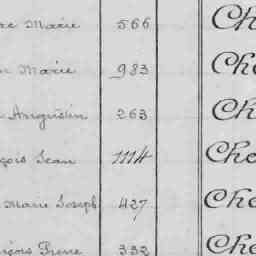 re Marie 566 Ch
n Marie 983 Che
Augustin 263 Ch
çois Jean 1114 Che
Marie Joseph 427 Che
nçois Pierre 332 Che